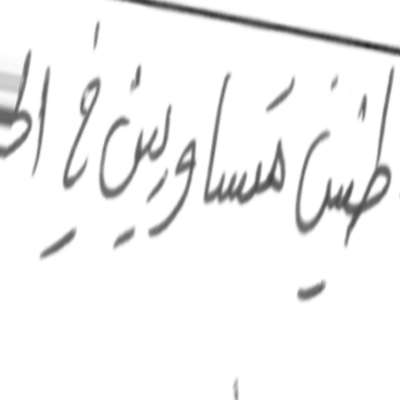 طين متساويين في